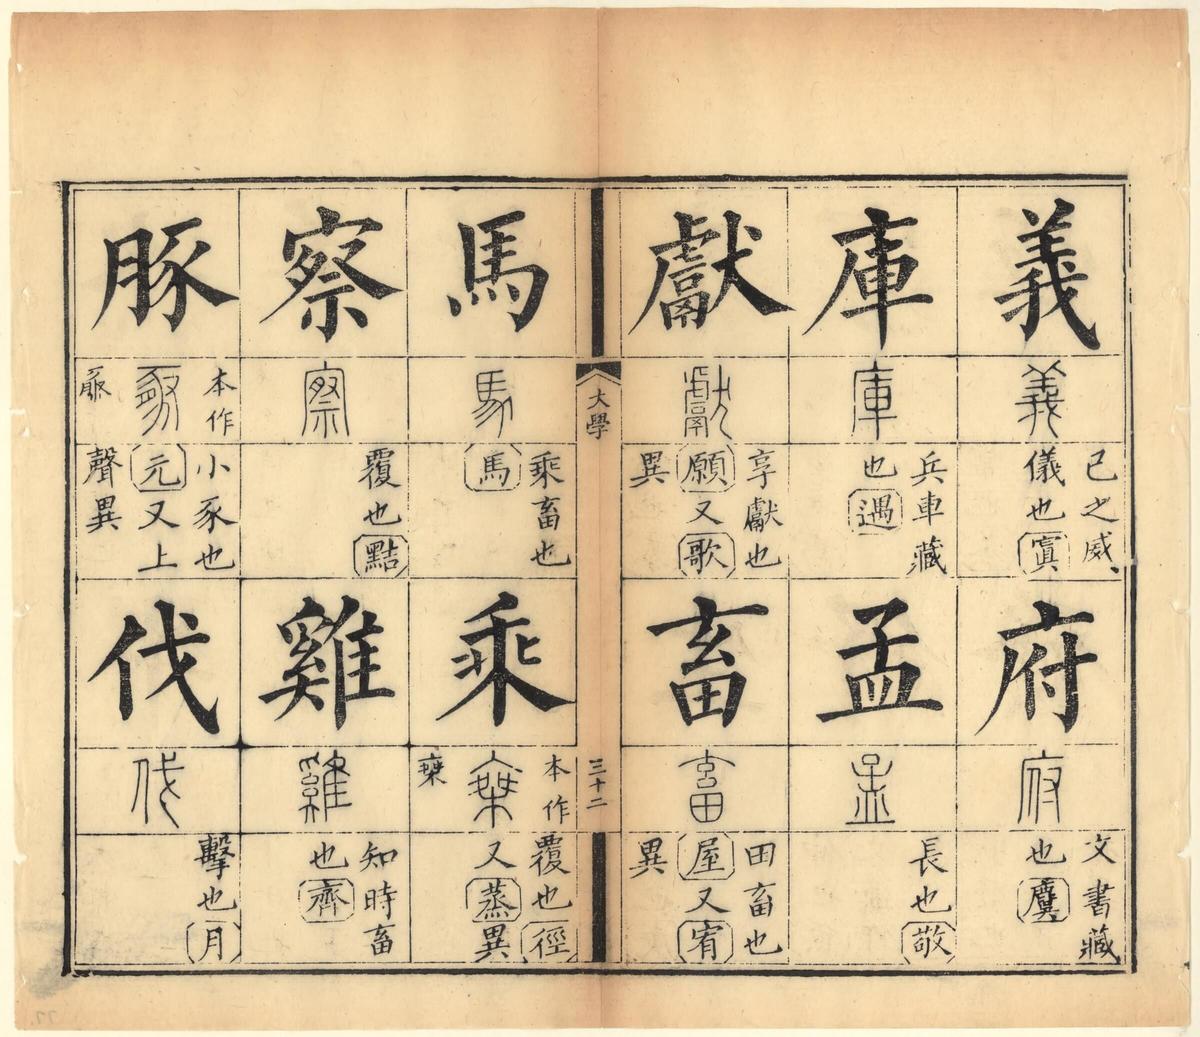 義
義
己之威
儀也寘
府
府
文書藏
也麌
庫
庫
兵車藏
也遇
孟
孟
長也敬
獻
獻
享獻也
願又歌
異
畜
畜
田畜也
屋又宥
異
大學
三十二
馬
馬
乘畜也
馬
乘
本作
乘
椉
覆也徑
又蒸異
察
察
覆也黠
雞
雞
知時畜
也齊
豚
本作
豚
小豕也
元又上
聲異
伐
伐
擊也月